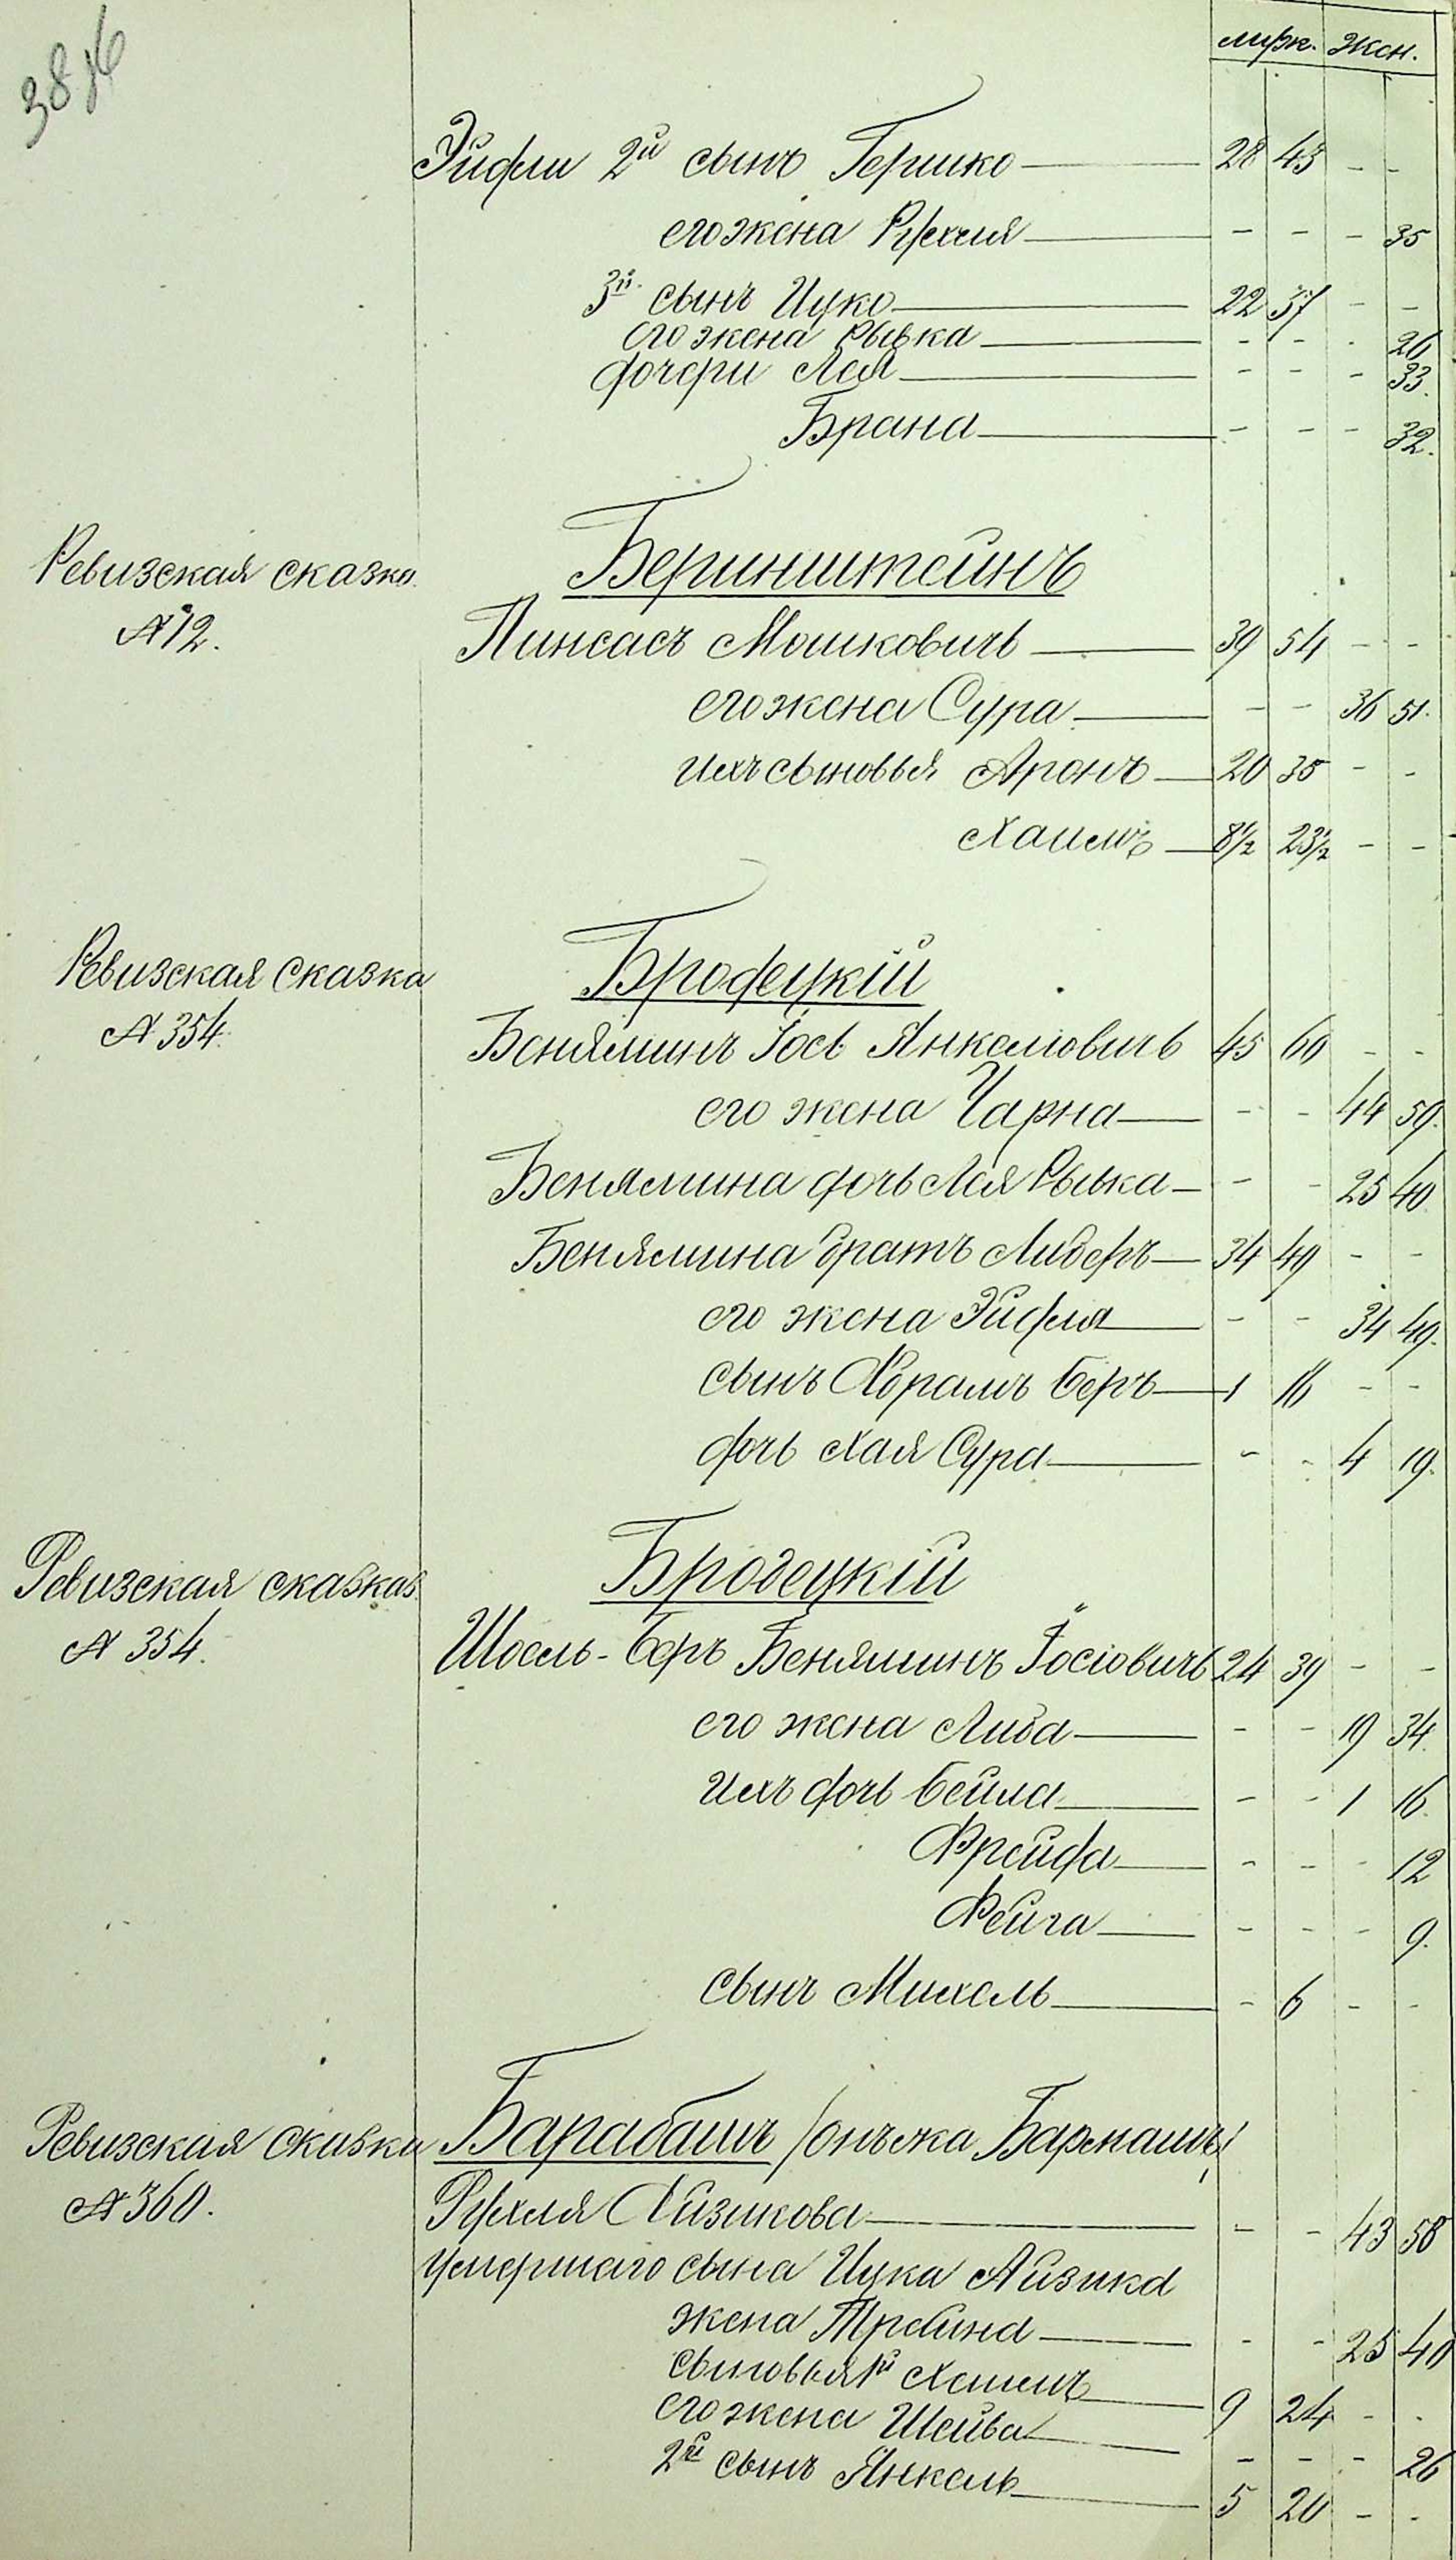 38 16
мужс. женс.
Эйдли 2й сынъ Гершко — 28 43 - -
его жена Рухля — - - - 35
3й сынъ Ицко — 22 37 - -
его жена Рывка — - - - 26
дочери Лея — - - - 33.
Брана — - - - 32.
Ревизская сказка Беринштейнъ
№ 12. Пинсасъ Мошковичъ — 39 54 - -
его жена Сура — - - 36 51.
ихъ сыновья Аронъ — 20 35 - -
Хаимъ — 8½ 23½ - -
Ревизская сказка Бродецкій
№ 354. Беняминъ Іось Янкеліовичъ 45 60 - -
его жена Чарна — - - 44 59.
Бенямина дочь Лея Рывка — - - 25 40
Бенямина братъ Либеръ — 34 49 - -
его жена Эйдля — - - 34 49.
сынъ Абрамъ Беръ — 1 16 - -
дочь Хая Сура — - - 4 19.
Ревизская сказка Бродецкій
№ 354. Шоель-Беръ Беняминъ Іосіовичъ 24 39 - -
его жена Либа — - - 19 34.
ихъ дочь Бейла — - - 1 16.
Фрейда — - - - 12
Фейга — - - - 9.
сынъ Михель — - 6 - -
Ревизская сказка Барабашъ /онъ же Бармашъ/
№ 360. Рухля Айзикова — - - 43 58
умершаго сына Ицка Айзика
жена Трейна — - - 25 40
сыновья 1й Хаимъ — 9 24 - -
его жена Шейва — - - - 26
2й сынъ Янкель — 5 20 - -